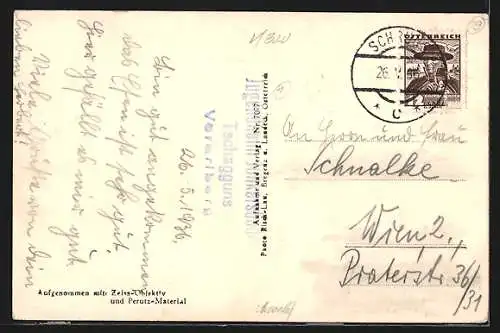 26. 5. 1936.
Bin gut angekommen
das Essen ist sehr gut
hier gefällt es mir gut
Viele Grüße von dein
lieben
Tschagguns
Vorarlberg
Aufgenommen mit Zeiss-Objektiv
und Perutz-Material
Aufnahme und Verlag: Nr. 7007
Photo Risch-Lau, Bregenz u. Landeck, Österreich
ÖSTERREICH
SCHR
26. V.
* C *
An Herrn und Frau
Schnalke
Wien, 2,
Praterstr. 36/
31